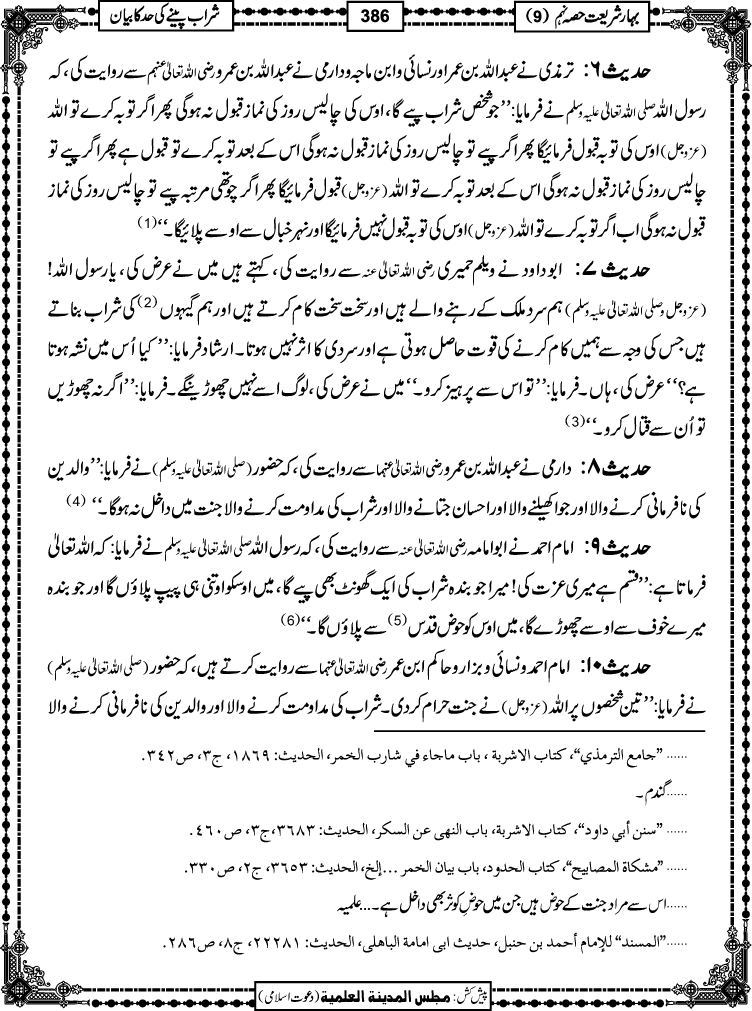 بہارِ شریعت حصہ نہم (9)
386
شراب پینے کی حد کا بیان
حدیث ۶: ترمذی نے عبداللہ بن عمر اور نسائی وابن ماجہ ودارمی نے عبداللہ بن عمرو رضی اللہ تعالیٰ عنہم سے روایت کی، کہ
رسول اللہ صلی اللہ تعالیٰ علیہ وسلم نے فرمایا: ’’جو شخص شراب پیے گا، اوس کی چالیس روز کی نماز قبول نہ ہوگی پھر اگر توبہ کرے تو اللہ
(عزوجل) اوس کی توبہ قبول فرمائیگا پھر اگر پیے تو چالیس روز کی نماز قبول نہ ہوگی اس کے بعد توبہ کرے تو قبول ہے پھر اگر پیے تو
چالیس روز کی نماز قبول نہ ہوگی اس کے بعد توبہ کرے تو اللہ (عزوجل) قبول فرمائیگا پھر اگر چوتھی مرتبہ پیے تو چالیس روز کی نماز
قبول نہ ہوگی اب اگر توبہ کرے تو اللہ (عزوجل) اوس کی توبہ قبول نہیں فرمائیگا اور نہر خبال سے اوسے پلائیگا۔‘‘ (1)
حدیث ۷: ابوداود نے ویلم حمیری رضی اللہ تعالیٰ عنہ سے روایت کی، کہتے ہیں میں نے عرض کی، یارسول اللہ!
(عزوجل وصلی اللہ تعالیٰ علیہ وسلم) ہم سرد ملک کے رہنے والے ہیں اور سخت سخت کام کرتے ہیں اور ہم گیہوں (2) کی شراب بناتے
ہیں جس کی وجہ سے ہمیں کام کرنے کی قوت حاصل ہوتی ہے اور سردی کا اثر نہیں ہوتا۔ ارشاد فرمایا: ’’کیا اُس میں نشہ ہوتا
ہے؟‘‘ عرض کی، ہاں۔ فرمایا: ’’تو اس سے پرہیز کرو۔‘‘ میں نے عرض کی، لوگ اسے نہیں چھوڑینگے۔ فرمایا: ’’اگر نہ چھوڑیں
تو اُن سے قتال کرو۔‘‘ (3)
حدیث ۸: دارمی نے عبداللہ بن عمرو رضی اللہ تعالیٰ عنہما سے روایت کی، کہ حضور (صلی اللہ تعالیٰ علیہ وسلم) نے فرمایا: ’’والدین
کی نافرمانی کرنے والا اور جوا کھیلنے والا اور احسان جتانے والا اور شراب کی مداومت کرنے والا جنت میں داخل نہ ہوگا۔‘‘ (4)
حدیث ۹: امام احمد نے ابوامامہ رضی اللہ تعالیٰ عنہ سے روایت کی، کہ رسول اللہ صلی اللہ تعالیٰ علیہ وسلم نے فرمایا: کہ اللہ تعالیٰ
فرماتا ہے: ’’قسم ہے میری عزت کی! میرا جو بندہ شراب کی ایک گھونٹ بھی پیے گا، میں اوسکو اوتنی ہی پیپ پلاؤں گا اور جو بندہ
میرے خوف سے اوسے چھوڑے گا، میں اوس کو حوض قدس (5) سے پلاؤں گا۔‘‘ (6)
حدیث ۱۰: امام احمد ونسائی وبزار وحاکم ابن عمر رضی اللہ تعالیٰ عنہما سے روایت کرتے ہیں، کہ حضور (صلی اللہ تعالیٰ علیہ وسلم)
نے فرمایا: ’’تین شخصوں پر اللہ (عزوجل) نے جنت حرام کردی۔ شراب کی مداومت کرنے والا اور والدین کی نافرمانی کرنے والا
...... ”جامع الترمذي“، كتاب الاشربة ، باب ماجاء في شارب الخمر، الحديث: ۱۸۶۹، ج۳، ص۳۴۲.
......گندم۔
...... ”سنن أبي داود“، كتاب الاشربة، باب النهى عن السكر، الحديث: ۳۶۸۳،ج۳، ص۴۶۰.
...... ”مشكاة المصابيح“، كتاب الحدود، باب بيان الخمر ...إلخ، الحديث: ۳۶۵۳، ج۲، ص۳۳۰.
......اس سے مراد جنت کے حوض ہیں جن میں حوضِ کوثر بھی داخل ہے۔...علمیہ
......”المسند“ للإمام أحمد بن حنبل، حديث ابى امامة الباهلى، الحديث: ۲۲۲۸۱، ج۸، ص۲۸۶.
پیش کش: مجلس المدینة العلمیة (دعوت اسلامی)